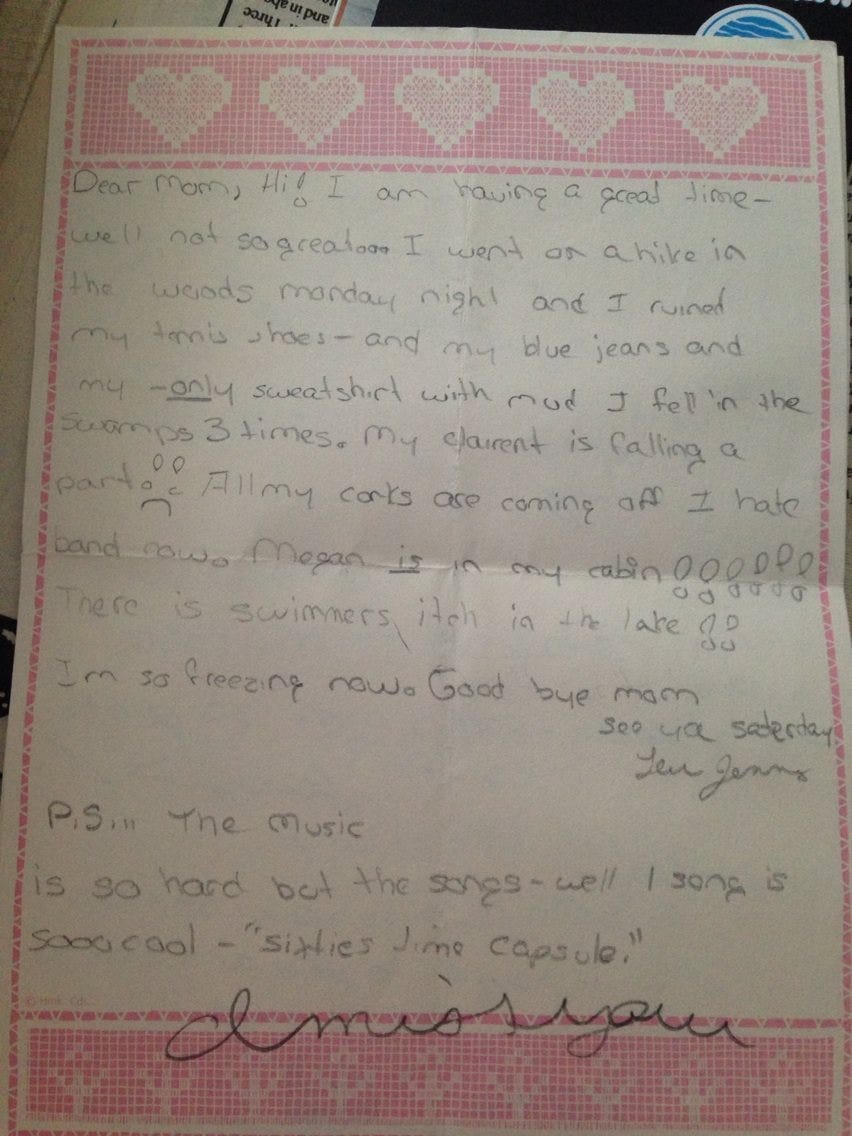 and in abo
Three
Dear mom, Hi! I am having a great time-
well not so great... I went on a hike in
the woods monday night and I ruined
my tennis shoes- and my blue jeans and
my -only sweatshirt with mud I fell in the
swamps 3 times. My clairent is falling a
part. !! All my corks are coming off I hate
band now. Megan is in my cabin !!!!!!
There is swimmers itch in the lake !!
Im so freezing now. Good bye mom
see ya saterday
Jenny
P.S... The music
is so hard but the songs- well 1 song is
sooo cool - "sixties time capsule."
I miss you